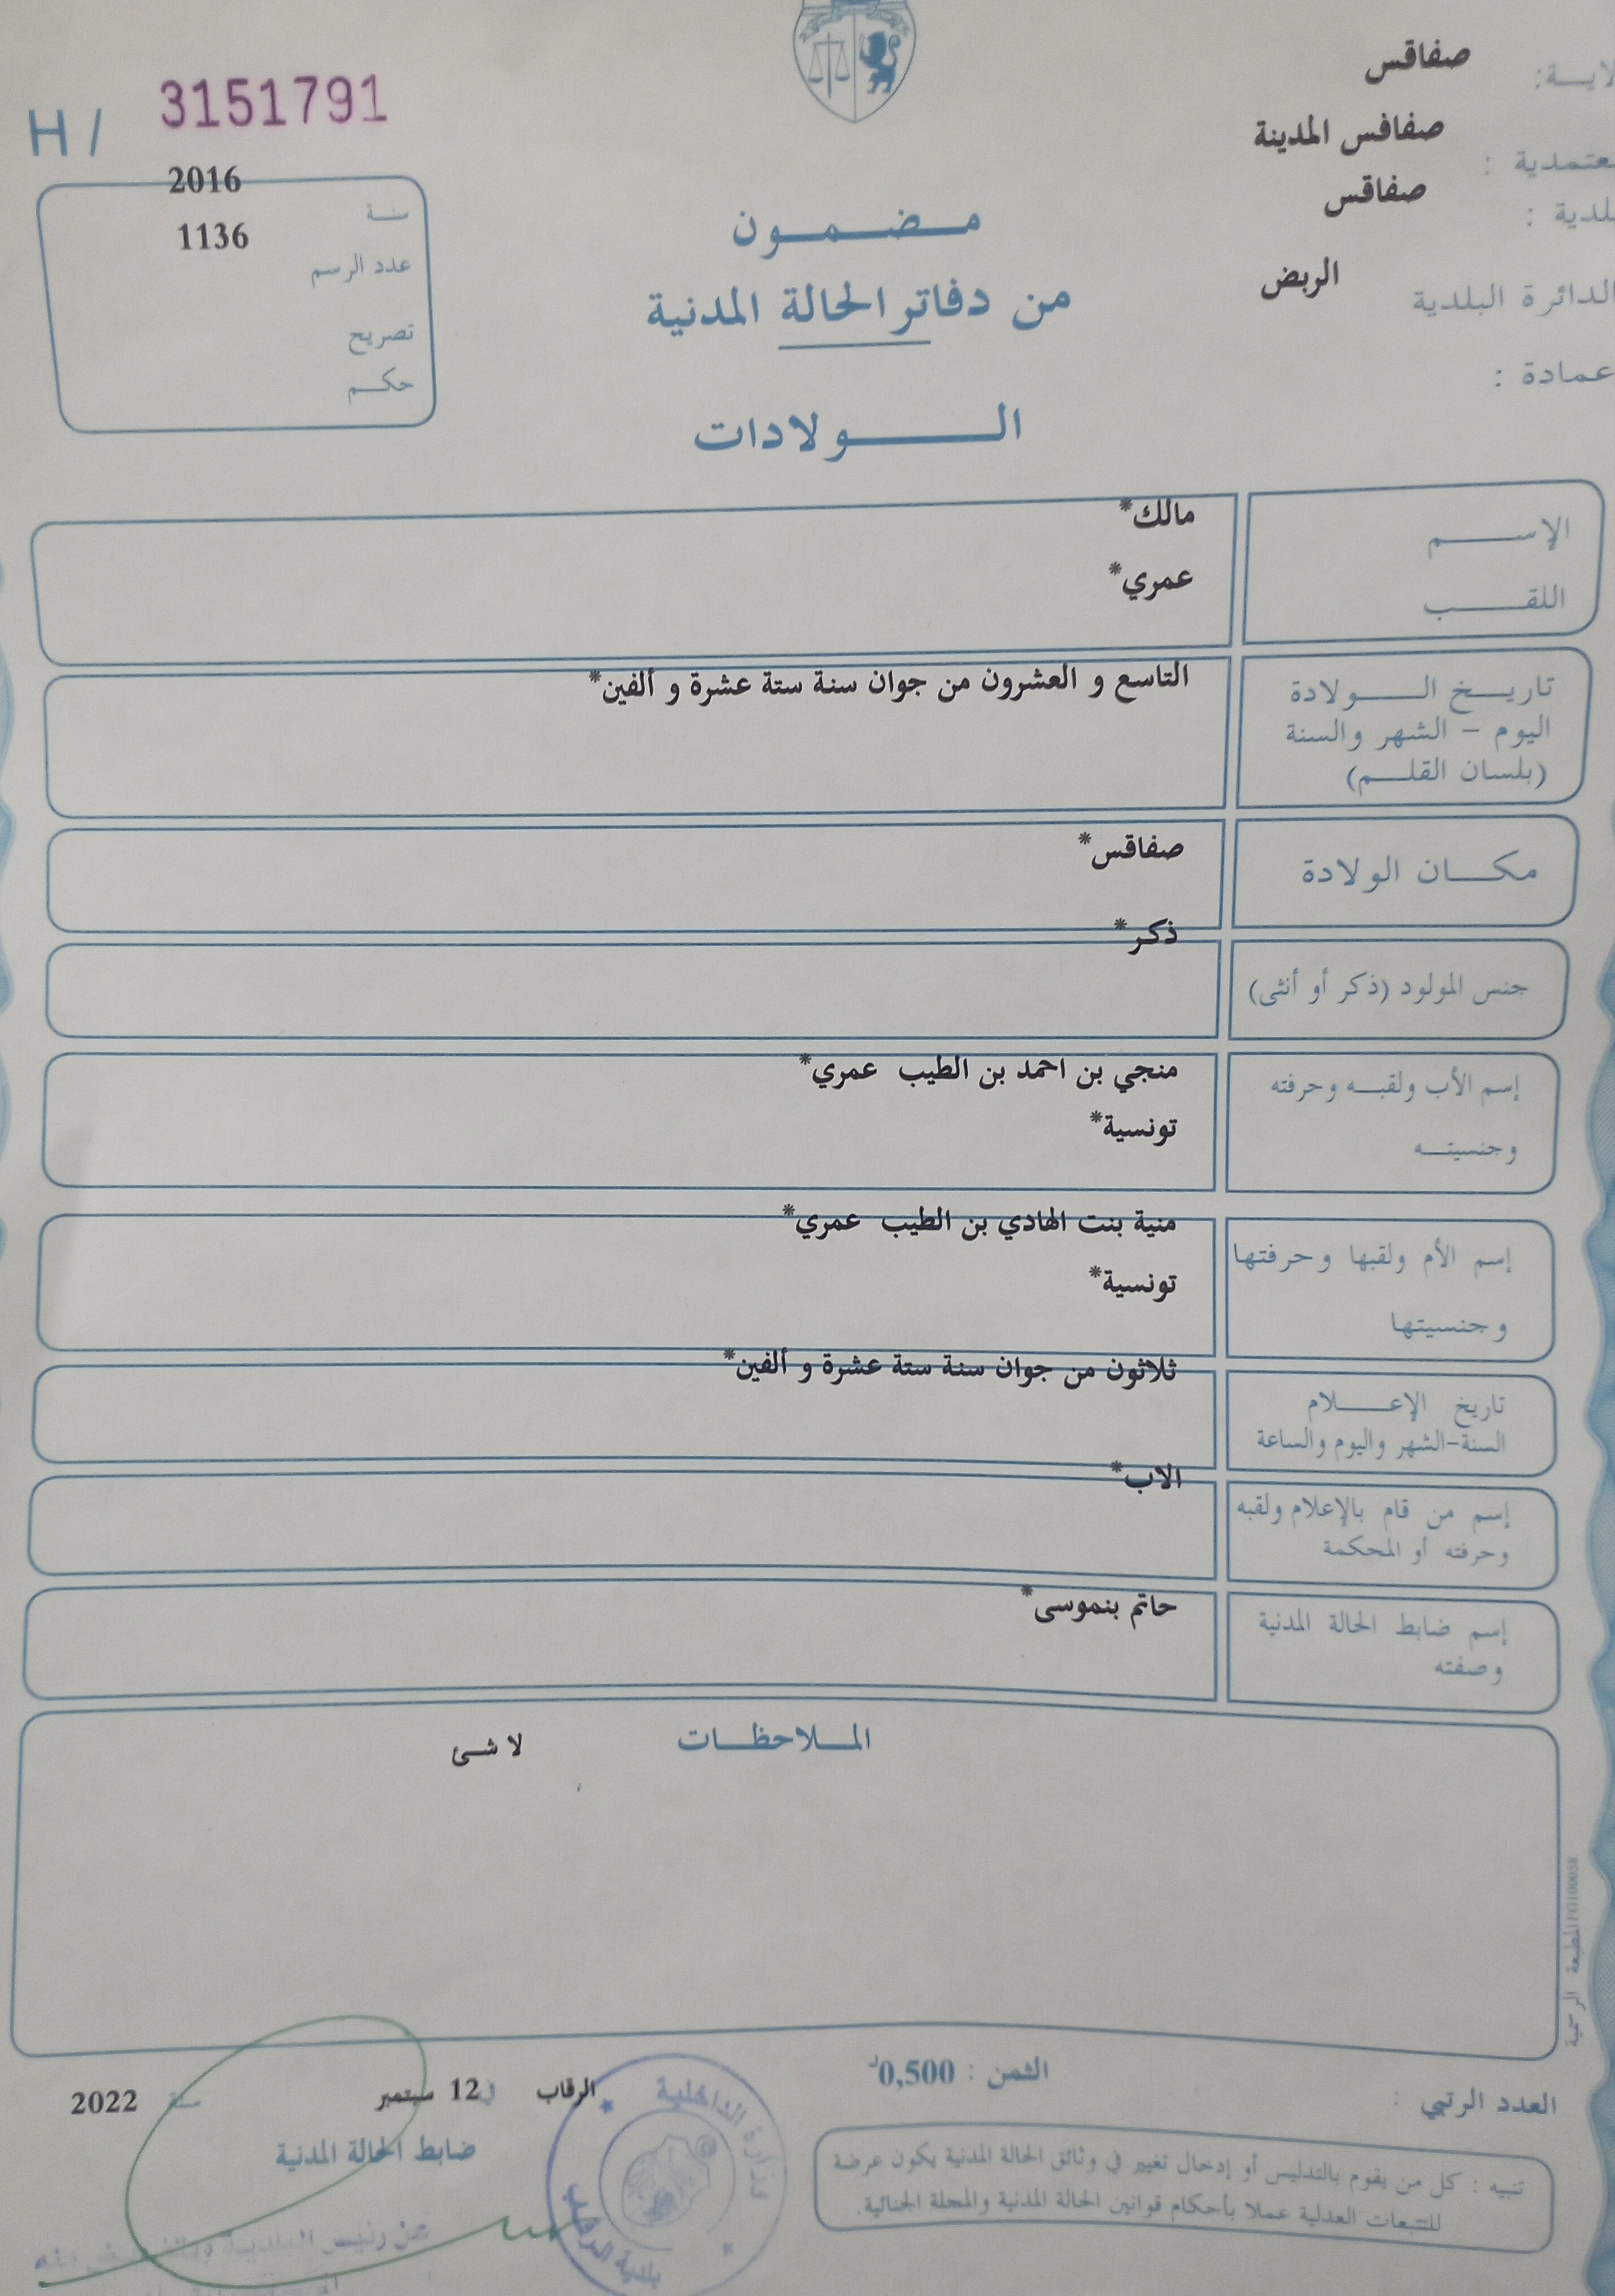 ولاية: صفاقس
معتمدية : صفافس المدينة
بلدية : صفاقس
الدائرة البلدية الربض
عمادة :
H / 3151791
سنة 2016
عدد الرسم 1136
تصريح
حكم
مضمون
من دفاتر الحالة المدنية
الولادات
الإسم مالك*
اللقب عمري*
تاريخ الولادة التاسع و العشرون من جوان سنة ستة عشرة و ألفين*
اليوم – الشهر والسنة
(بلسان القلم)
مكان الولادة صفاقس*
جنس المولود (ذكر أو أنثى) ذكر*
إسم الأب ولقبه وحرفته منجي بن احمد بن الطيب عمري*
وجنسيته تونسية*
إسم الأم ولقبها وحرفتها منية بنت الهادي بن الطيب عمري*
وجنسيتها تونسية*
تاريخ الإعلام ثلاثون من جوان سنة ستة عشرة و ألفين*
السنة-الشهر واليوم والساعة
إسم من قام بالإعلام ولقبه الاب*
وحرفته أو المحكمة
إسم ضابط الحالة المدنية حاتم بنموسى*
وصفته
الملاحظات لا شئ
المطبعة الرسمية FG100038
الثمن : 0,500د
العدد الرتبي :
الرقاب في 12 سبتمبر سنة 2022
ضابط الحالة المدنية
تنبيه : كل من يقوم بالتدليس أو إدخال تغيير في وثائق الحالة المدنية يكون عرضة
للتتبعات العدلية عملا بأحكام قوانين الحالة المدنية والمجلة الجنائية.
وزارة الداخلية
بلدية الرقاب
عن رئيس البلدية